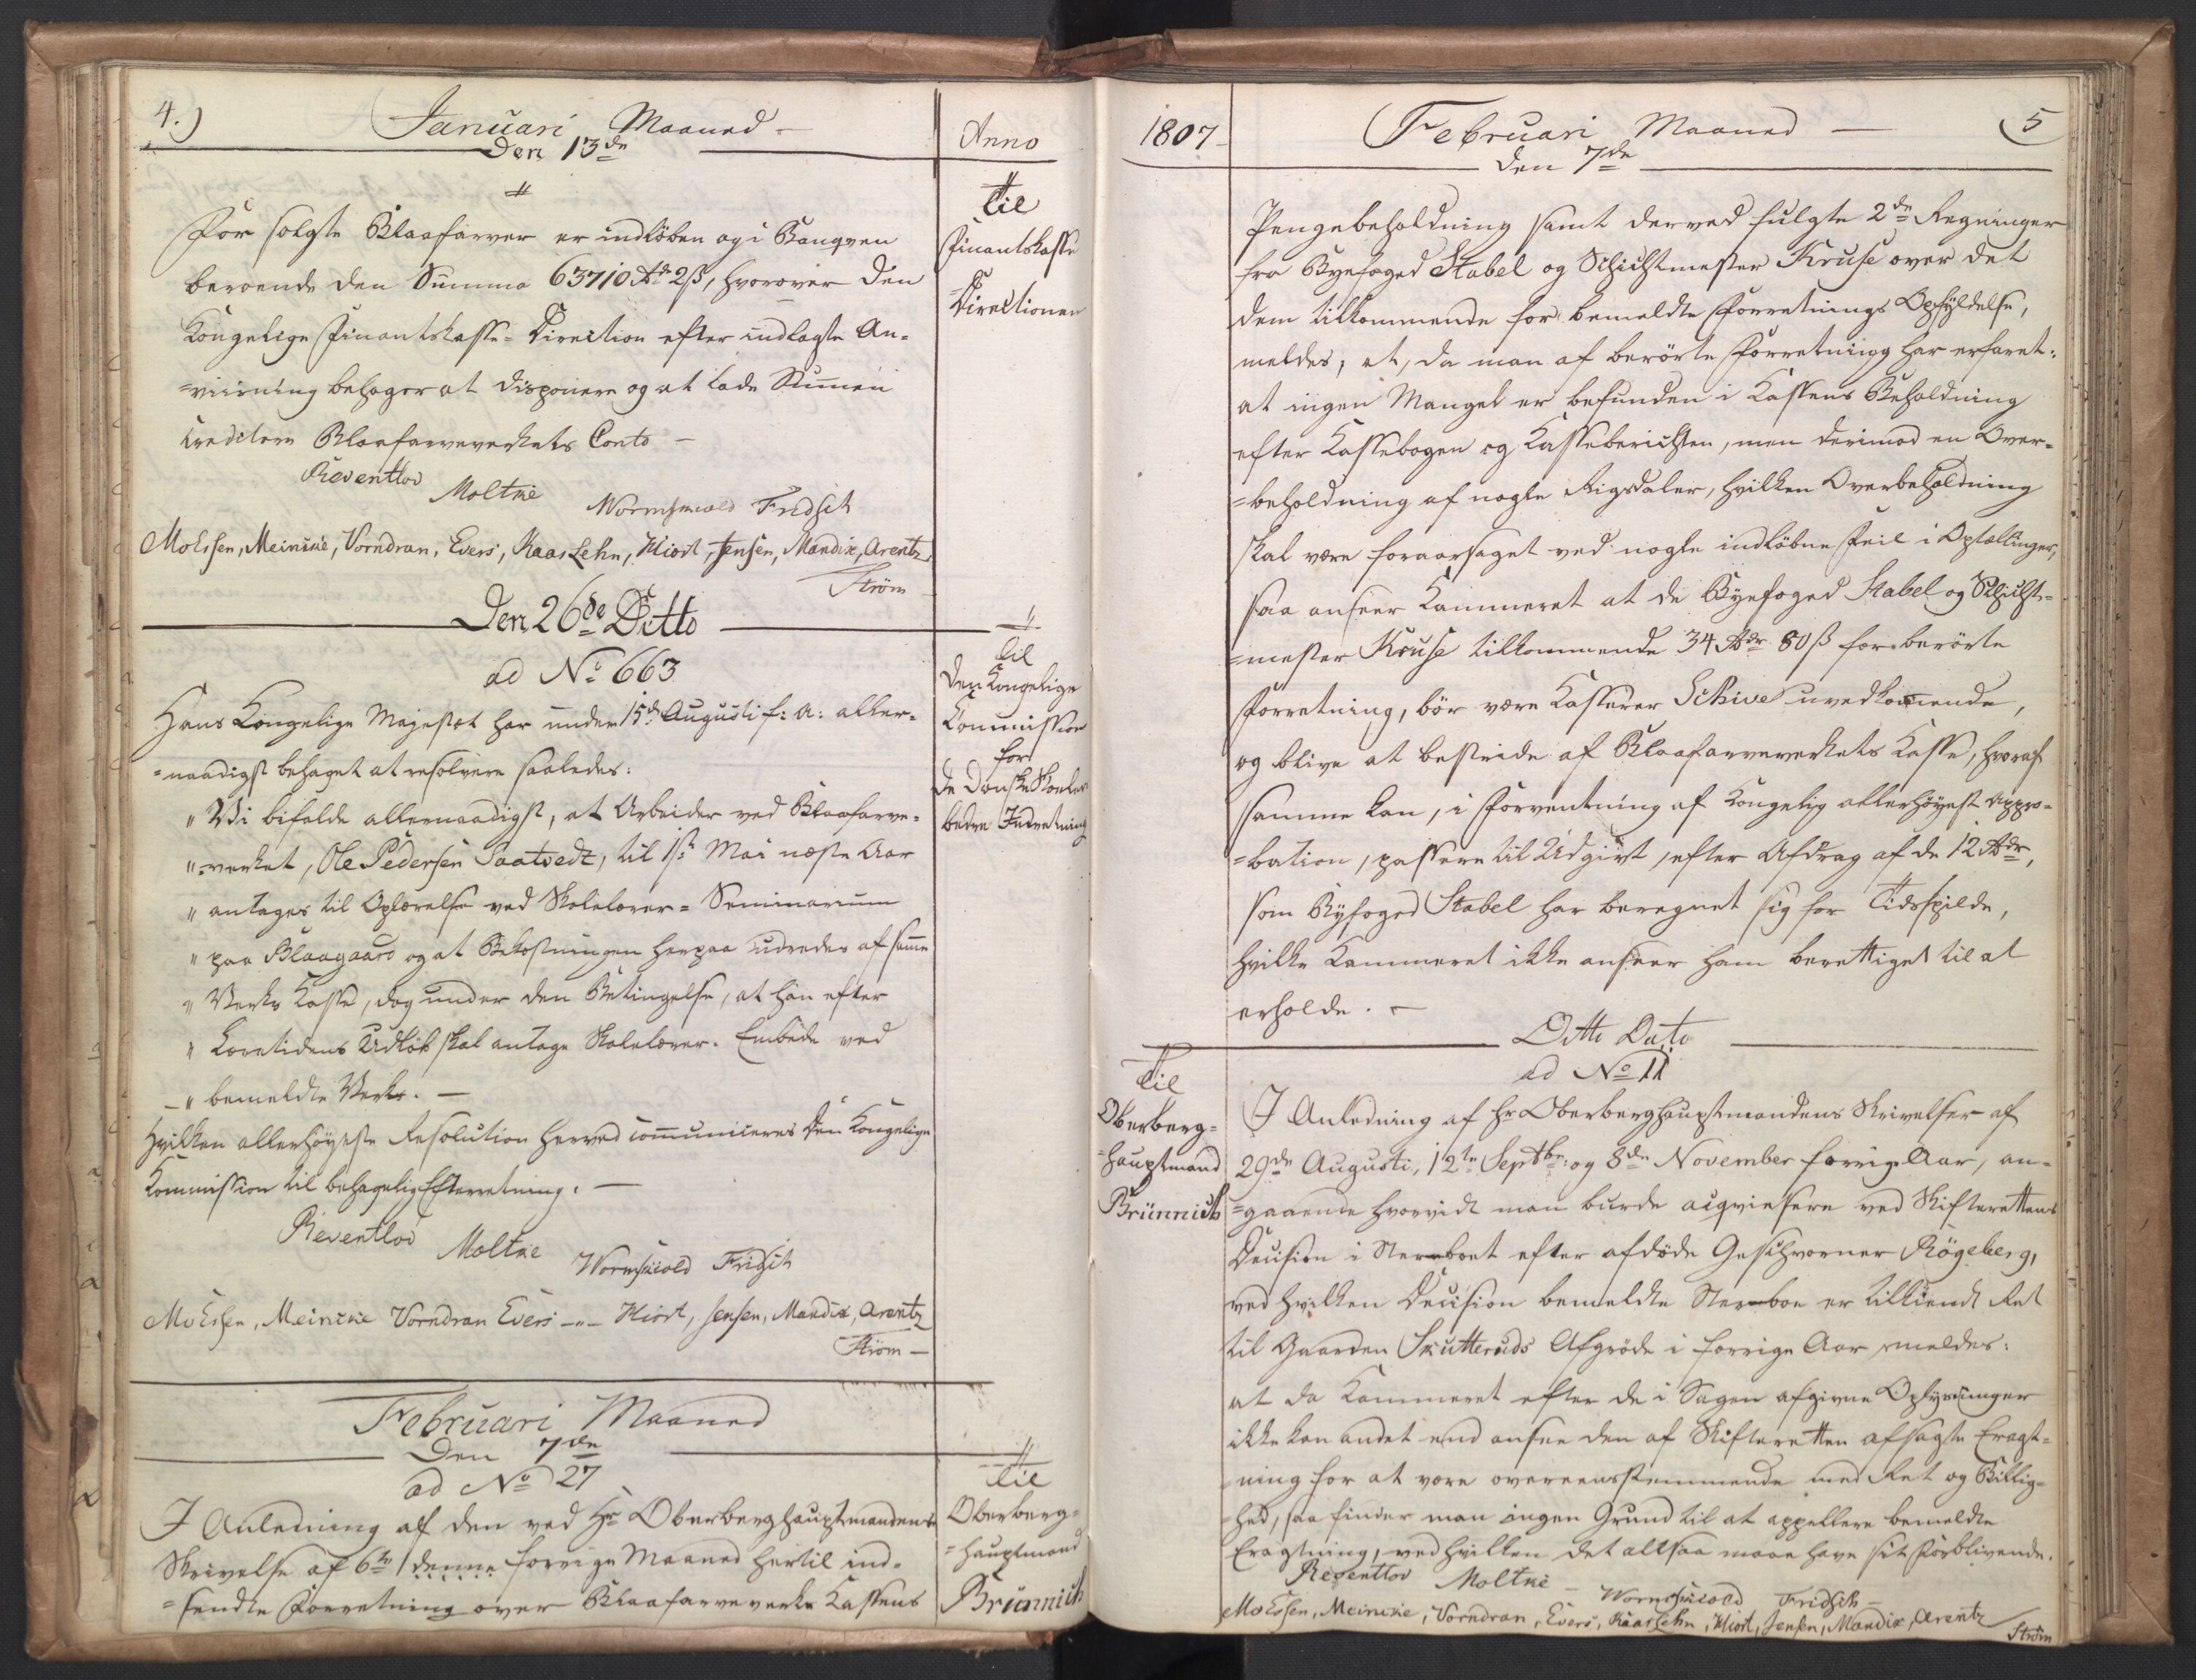 4.)
Januari Maaned -
Den 13de
Anno
Til
Finantskasse
Directionen
For solgte Blaafarver er indløben og i Banqven
beroende den Summa 63710 Rdr 2 ß, hvorover den
Kongelige Finantskasse-Direction efter indlagte An-
=viisning behager at disponere og at lade Sum̅en
creditere Blaafarveverkets Conto -
Reventlov Moltke Wormskiold Fridsch
Moessen, Meincke, Vorndran, Evers, Kaas Lehn, Hiort, Jensen, Mandix, Arentz
Strøm
Den 26de Ditto
ad No 663
Til
Den Kongelige
Commission
for
de Danske Skolers
bedre Indretning
Hans Kongelige Majestæt har under 15de Augusti f: A: aller-
=naadigst behaget at resolvere saaledes:
" Vi bifalde allernaadigst, at Arbeider ved Blaafarve-
"=verket, Ole Pedersen Saatvedt, til 1ste Mai næste Aar
" antages til Oplærelse ved Skolelærer-Seminarium
" paa Blaagaard og at Bekostningen herpaa udredes af sam̅e
" Verks Kasse, dog under den Betingelse, at han efter
" Læretidens Udløb skal antage Skolelærer-Embede ved
-" bemeldte Verk. -
Hvilken allerhøyeste Resolution herved com̅uniceres Den Kongelige
Kommission til behagelig Efterretning. -
Reventlov Moltke Wormskiold Fridsch
Moessen, Meincke Vorndran Evers -"- Hiort, Jensen, Mandix, Arentz
Strøm -
Februari Maaned
Den 7de
ad No 27
Til
Oberberg-
=hauptmand
Brünnich
I Anledning af den ved Hr Oberberghauptmandens
Skrivelse af 6te denne forrige Maaned hertil ind-
=sendte Forretning over Blaafarveverks Kassens
1807
Februari Maaned -
5
Den 7de
Pengebeholdning samt derved fulgte 2de Regninger
fra Byefoged Stabel og Schichtmester Kruse over det
dem tilkommende for bemeldte Forretnings Opfyldelse,
meldes, at, da man af berørte Forretning har erfaret:
at ingen Mangel er befunden i Kassens Beholdning
efter Kassebogen og Kasseberichten, men derimod en Over-
=beholdning af nogle Rigsdaler, hvilken Overbeholdning
skal være foraarsaget ved nogle indløbne Feil i Optællinger,
saa anseer Kammeret at de Byefoged Stabel og Schicht-
=mester Kruse tilkommende 34 Rdr 80 ß for berørte
Forretning, bør være Kasserer Schive uvedkom̅ende,
og blive at bestride af Blaafarveverkets Kasse, hvoraf
samme kan, i Forventning af Kongelig allerhøyest Appro-
=bation, passere til Udgivt, efter Afdrag af de 12 Rdr,
som Byfoged Stabel har beregnet sig for Tidsspilde,
hvilke Kammeret ikke anseer ham berettiget til at
erholde. -
Ditto Dato
ad No 11
Til
Oberberg-
=hauptmand
Brünnich
I Anledning af Hr Oberberghauptmandens Skrivelser af
29de Augusti, 12te Septbr: og 8de November forrige Aar, an-
=gaaende hvorvidt man burde acqviesere ved Skifterettens
Decision i Sterboet efter afdøde Geschworner Rögeberg,
ved hvilken Decision bemeldte Sterboe er tilkiendt Ret
til Gaarden Skutteruds Afgrøde i forrige Aar, meldes:
at da Kammeret efter de i Sagen afgivne Oplysninger
ikke kan andet end ansee den af Skifteretten afsagte Eragt-
=ning for at være overeensstemmende med Ret og Billig-
=hed, saa finder man ingen Grund til at appellere bemeldte
Eragtning, ved hvilken det altsaa maae have sit Forblivende.
Reventlov Moltke - Wormskiold Fridsch -
Moessen, Meincke, Vorndran, Evers, Kaas Lehn, Hiort, Jensen, Mandix, Arentz
Strøm